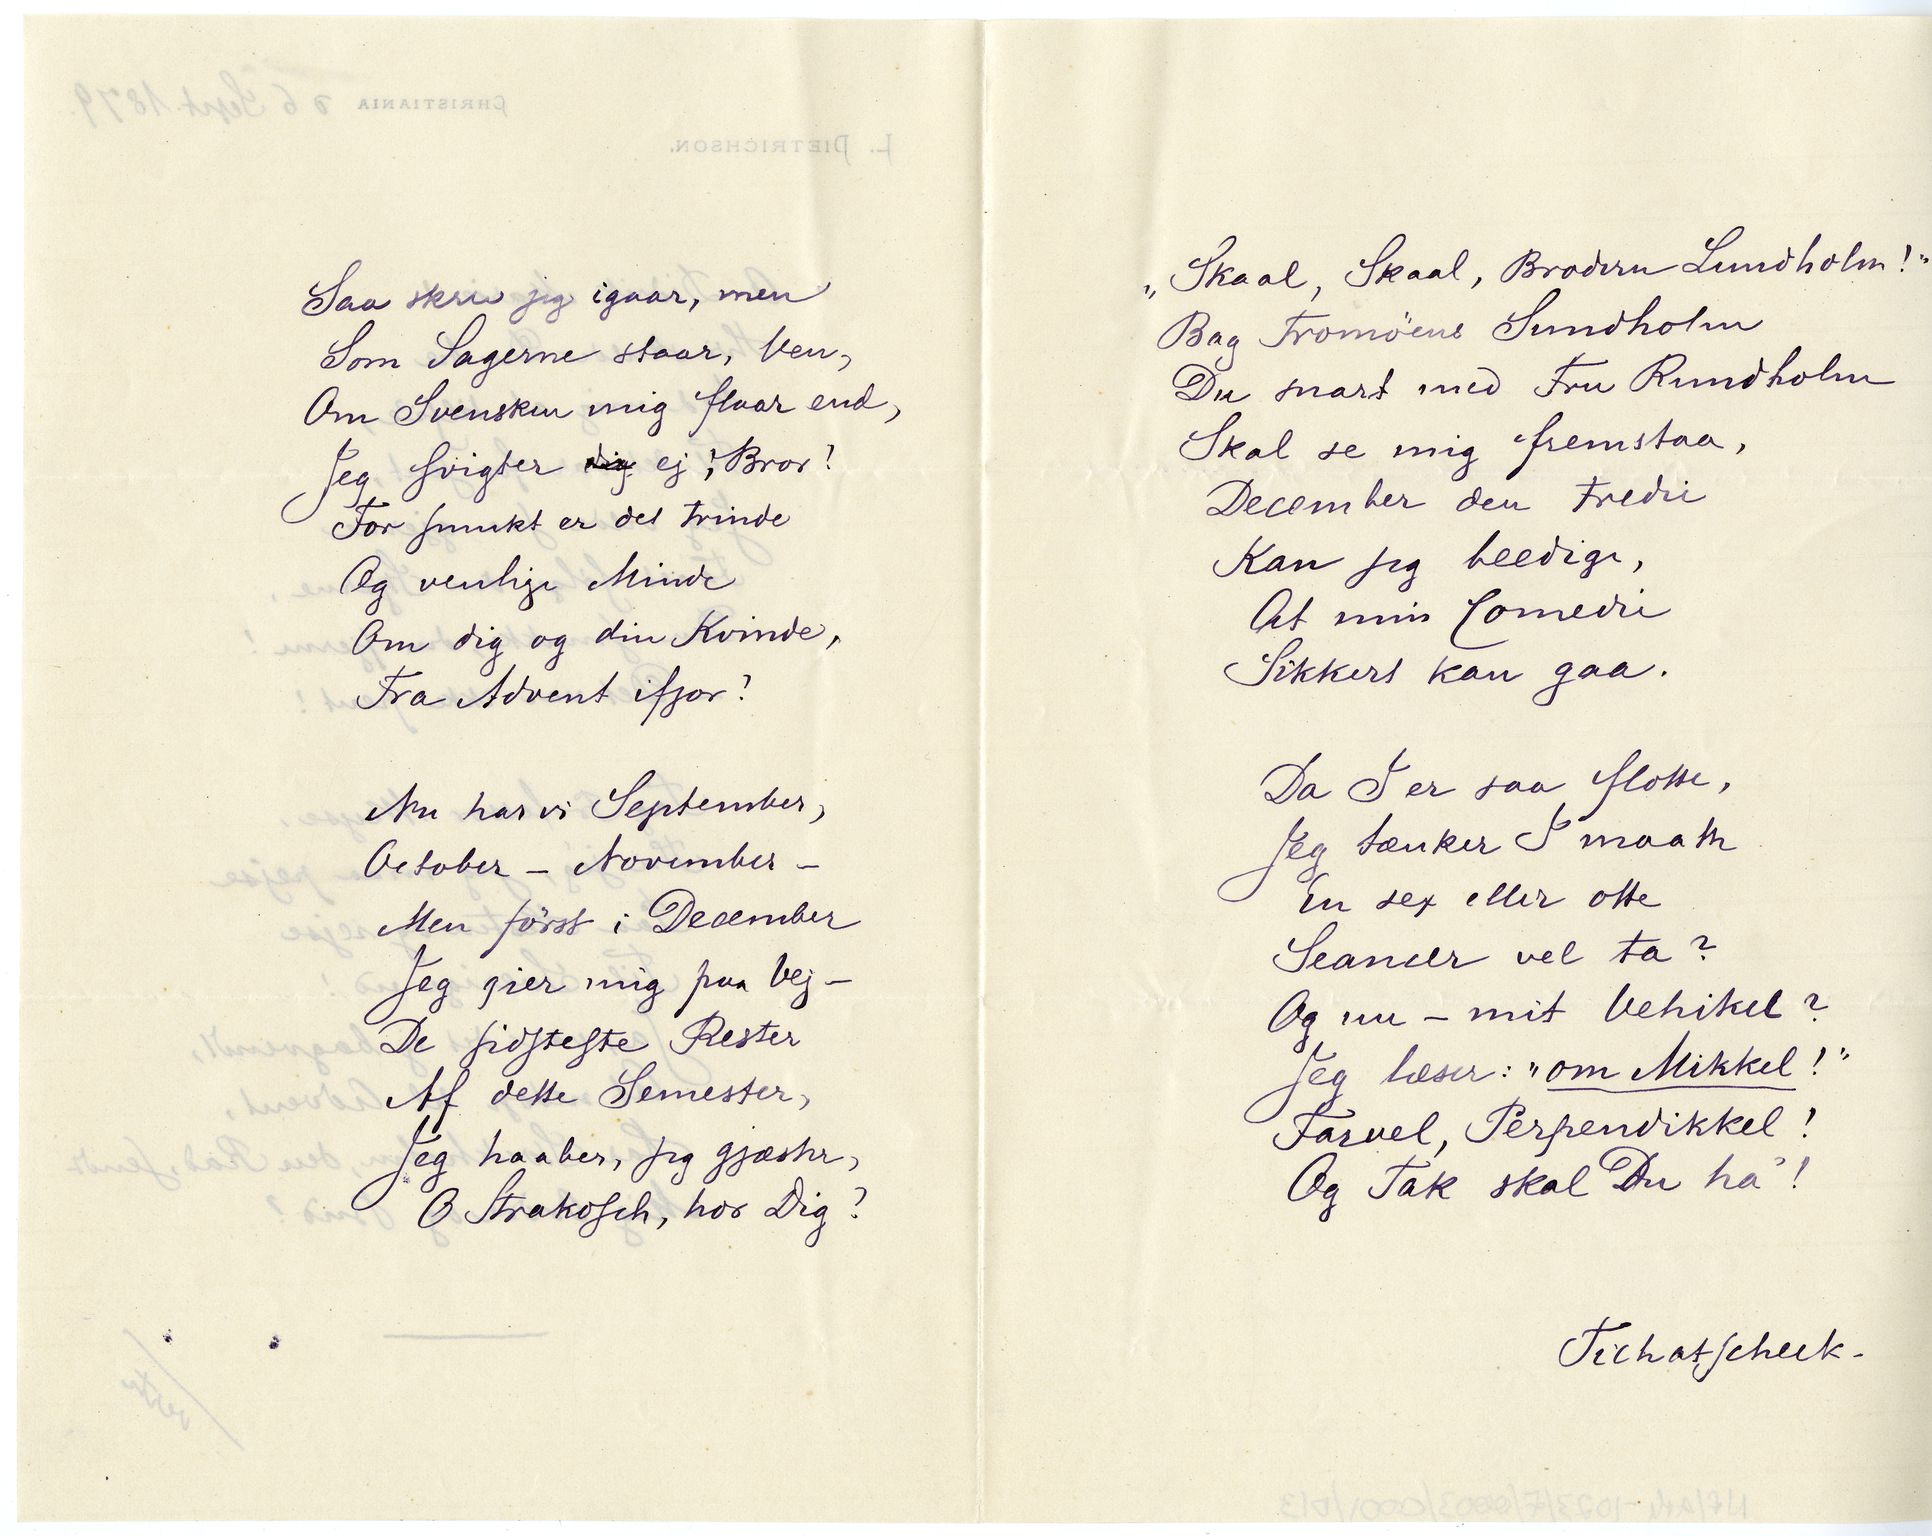 Saa skrev jeg igaar, men
Som Sagerne staar, Ven,
Om Svensken mig flaar end,
Jeg svigter dig ej, Bror!
For smukt er det trinde
Og venlige Minde
Om dig og din Kvinde,
Fra Advent ifjor!
Nu har vi September,
October – November –
Men först i December
Jeg gier mig paa Vej –
De sidsteste Rester
Af dette Semester,
Jeg haaber, jeg gjæster,
O Strakosch, hos Dig!
„Skaal, Skaal, Brodern Lundholm!"
Bag Tromöens Sundholm
Du snart med Fru Rundholm
Skal se mig fremstaa,
December den Tredie
Kan jeg beedige,
At min Comedie
Sikkert kan gaa.
Da I er saa flotte,
Jeg tænker I maatte
En sex eller otte
Seancer vel ta?
Og nu – mit Vehikel?
Jeg læser: "om Mikkel!"
Farvel, Perpendikkel!
Og Tak skal Du ha'!
Tichatscheck –
CHRISTIANIA d 6 Sept. 1879.
L. DIETRICHSON.